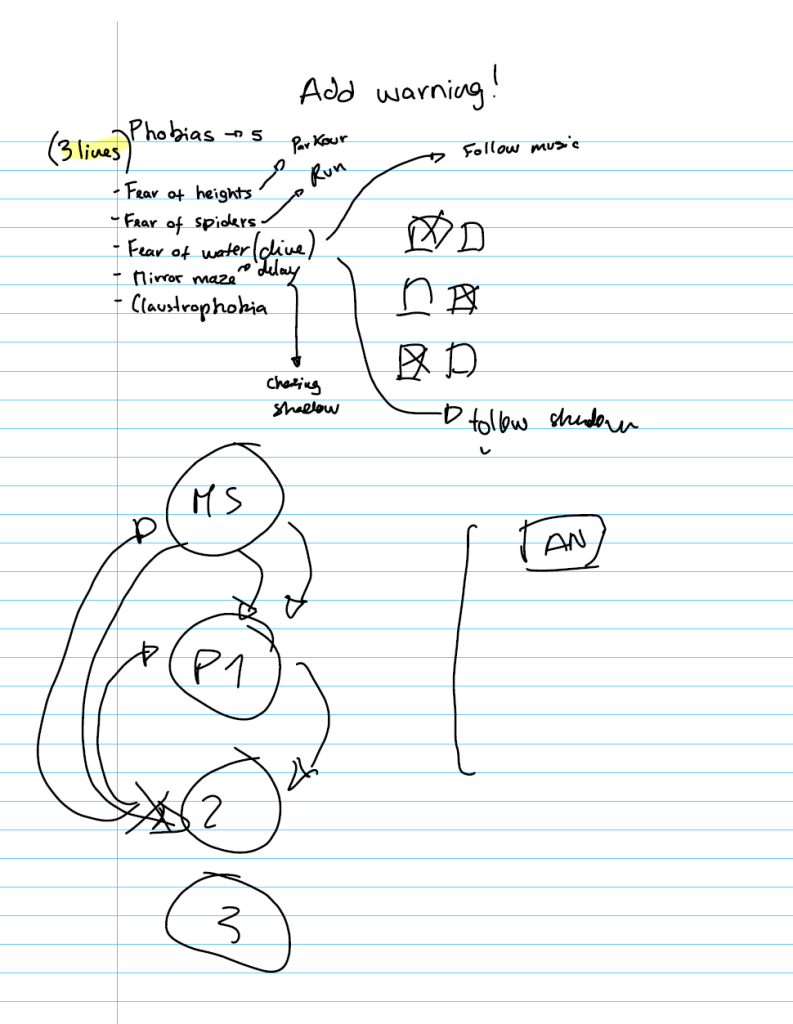 Add warning!
(3 lives) Phobias → 5
Parkour
Follow music
Run
- Fear of heights
- Fear of spiders
- Fear of water (dive)
- Mirror maze → delay
- Claustrophobia
Chasing
shadow
follow shadow
MS
AN
P1
2
3